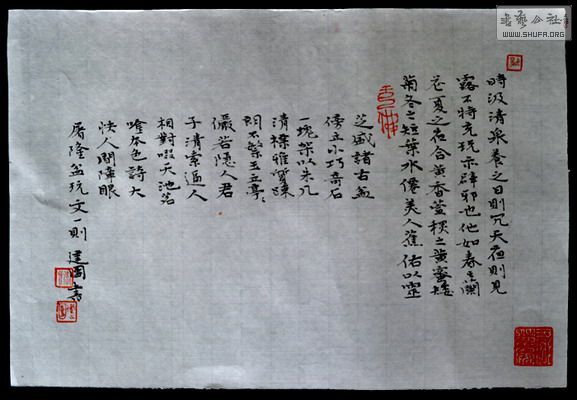 書藝公社
WWW.SHUFA.ORG
時汲清泉養之日則冗天夜則見
露不特充玩亦辟邪也他如春之蘭
花夏之夜合黄香萱秋之黄蜜矮
菊冬之短葉水僊美人蕉佑以靈
芝盛諸古盆
傍立小巧奇石
一塊架以朱几
清標雅質疎
朗不繁玉立亭〻
儼若隱人君
子清素逼人
相對啜天池茗
唫本色詩大
快人間障眼
屠隆盆玩文一則 建國書